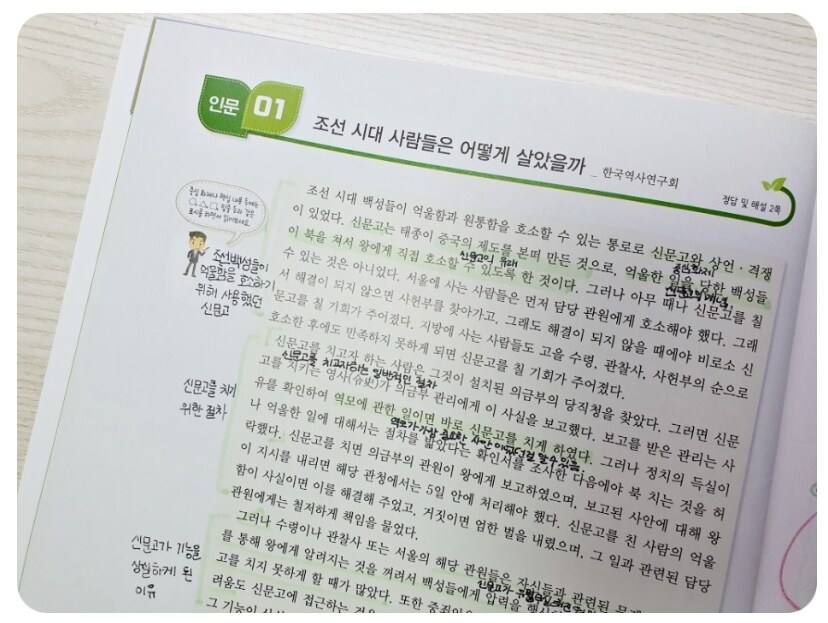 인문 01
조선 시대 사람들은 어떻게 살았을까 _ 한국역사연구회
정답 및 해설 2쪽
조선 시대 백성들이 억울함과 원통함을 호소할 수 있는 통로로 신문고와 상언·격쟁
이 있었다. 신문고는 태종이 중국의 제도를 본떠 만든 것으로, 억울한 일을 당한 백성들
신문고의 유래
중심 화제
이 북을 쳐서 왕에게 직접 호소할 수 있도록 한 것이다. 그러나 아무 때나 신문고를 칠
신문고의 개념
수 있는 것은 아니었다. 서울에 사는 사람들은 먼저 담당 관원에게 호소해야 했다. 그래
서 해결이 되지 않으면 사헌부를 찾아가고, 그래도 해결이 되지 않을 때에야 비로소 신
문고를 칠 기회가 주어졌다. 지방에 사는 사람들도 고을 수령, 관찰사, 사헌부의 순으로
호소한 후에도 만족하지 못하게 되면 신문고를 칠 기회가 주어졌다.
조선백성들이
억울함을 호소하기
위해 사용했던
신문고
신문고를 치고자 하는 사람은 그것이 설치된 의금부의 당직청을 찾았다. 그러면 신문
신문고를 치고자하는 일반적인 절차
고를 지키는 영사(令史)가 의금부 관리에게 이 사실을 보고했다. 보고를 받은 관리는 사
유를 확인하여 역모에 관한 일이면 바로 신문고를 치게 하였다. 그러나 정치의 득실이
역모가 가장 중요한 사안이었던걸 알 수 있음
나 억울한 일에 대해서는 절차를 밟았다는 확인서를 조사한 다음에야 북 치는 것을 허
락했다. 신문고를 치면 의금부의 관원이 왕에게 보고하였으며, 보고된 사안에 대해 왕
이 지시를 내리면 해당 관청에서는 5일 안에 처리해야 했다. 신문고를 친 사람의 억울
함이 사실이면 이를 해결해 주었고, 거짓이면 엄한 벌을 내렸으며, 그 일과 관련된 담당
관원에게는 철저하게 책임을 물었다.
신문고를 치기
위한 절차
그러나 수령이나 관찰사 또는 서울의 해당 관원들은 자신들과 관련된
를 통해 왕에게 알려지는 것을 꺼려서 백성들에게 압력을
고를 치지 못하게 할 때가 많았다. 또한
려움도 신문고에 접근하는
그 기능이
신문고가 기능을
상실하게 된
이유